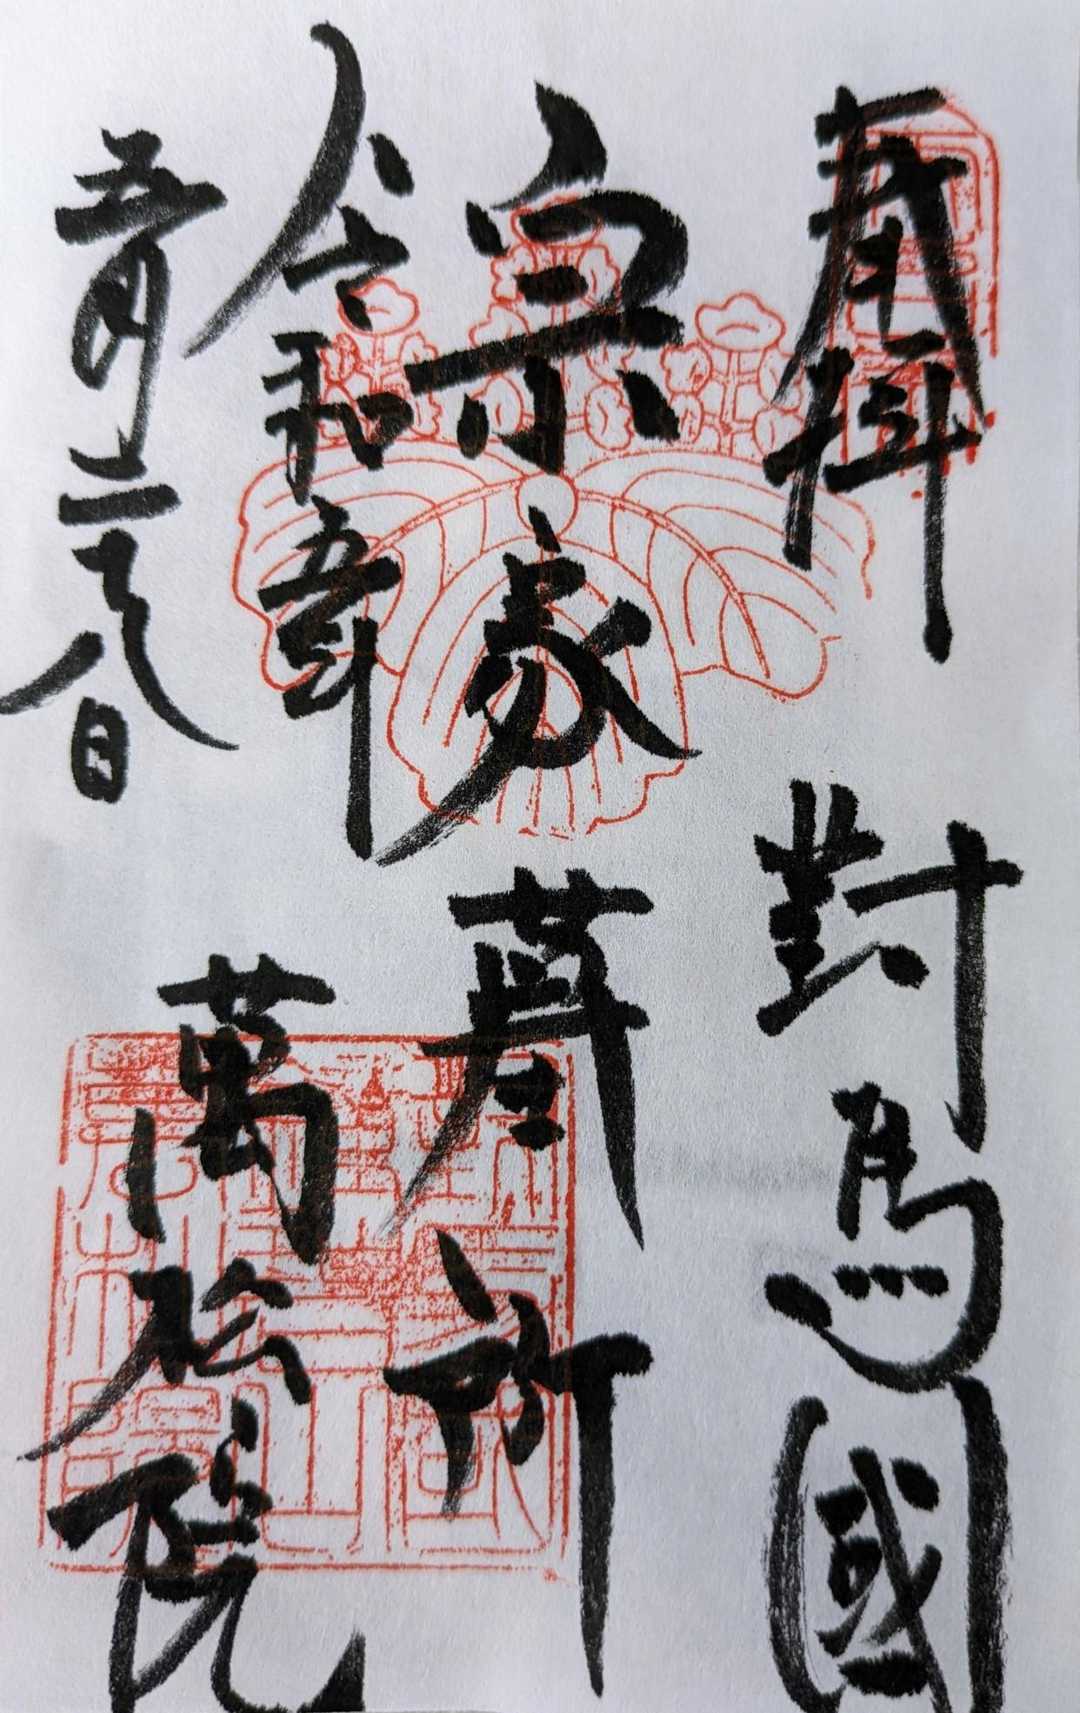 奉拝 對馬國
宗家墓所
令和五年
五月二十八日
萬松院